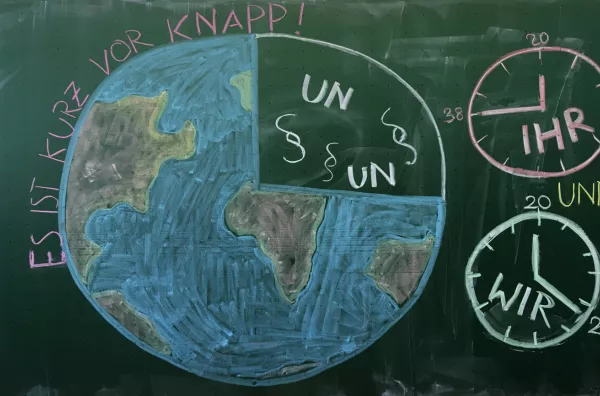 ES IST KURZ VOR KNAPP!
UN
§ § §
UN
20
38
IHR
UND
20
WIR
2